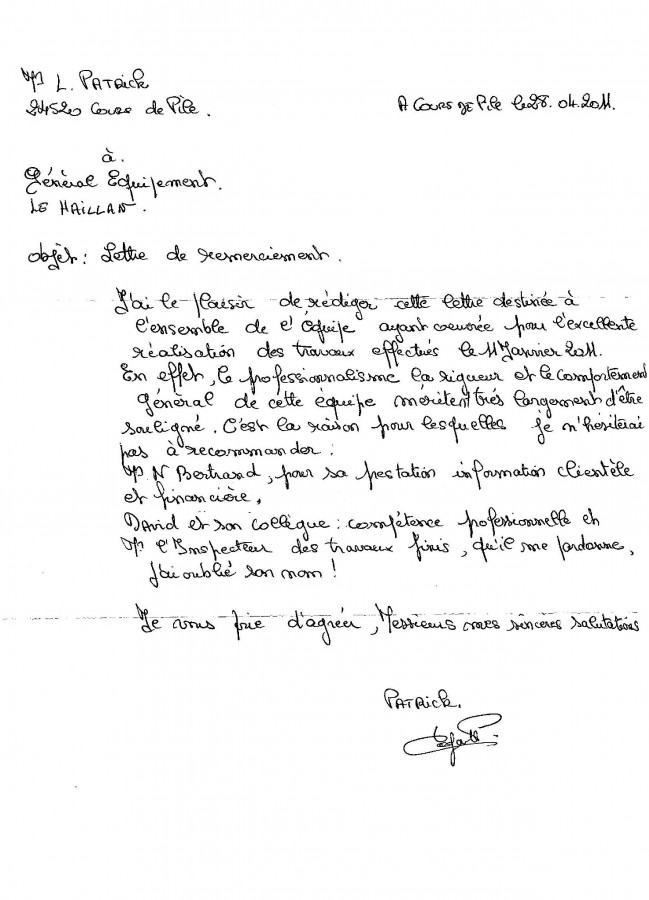 Mr L. PATRick
24520 Cours de Pile.
A COURS DE Pile le 28.04.2011.
à.
Général Equipement.
LE HAiLLAN.
Objèt: Lettre de remerciement.
J'ai le plaisir de rédiger cette lettre destinée à
l'ensemble de l'équipe ayant oeuvrée pour l'excellente
réalisation des travaux effectués le 11 Janvier 2011.
En effet, le professionnalisme la rigueur et le comportement
Général de cette équipe meritent très largement d'être
souligné. C'est la raison pour lesquelles je n'hésiterai
pas à recommander:
Mr N Bertrand, pour sa prestation information clientèle
et financière,
David et son collègue: compétence professionnelle et
Mr l'Inspecteur des travaux finis, qu'il me pardonne,
J'ai oublié son nom!
Je vous prie d'agréer, Messieurs mes sincères salutations
PATRick.